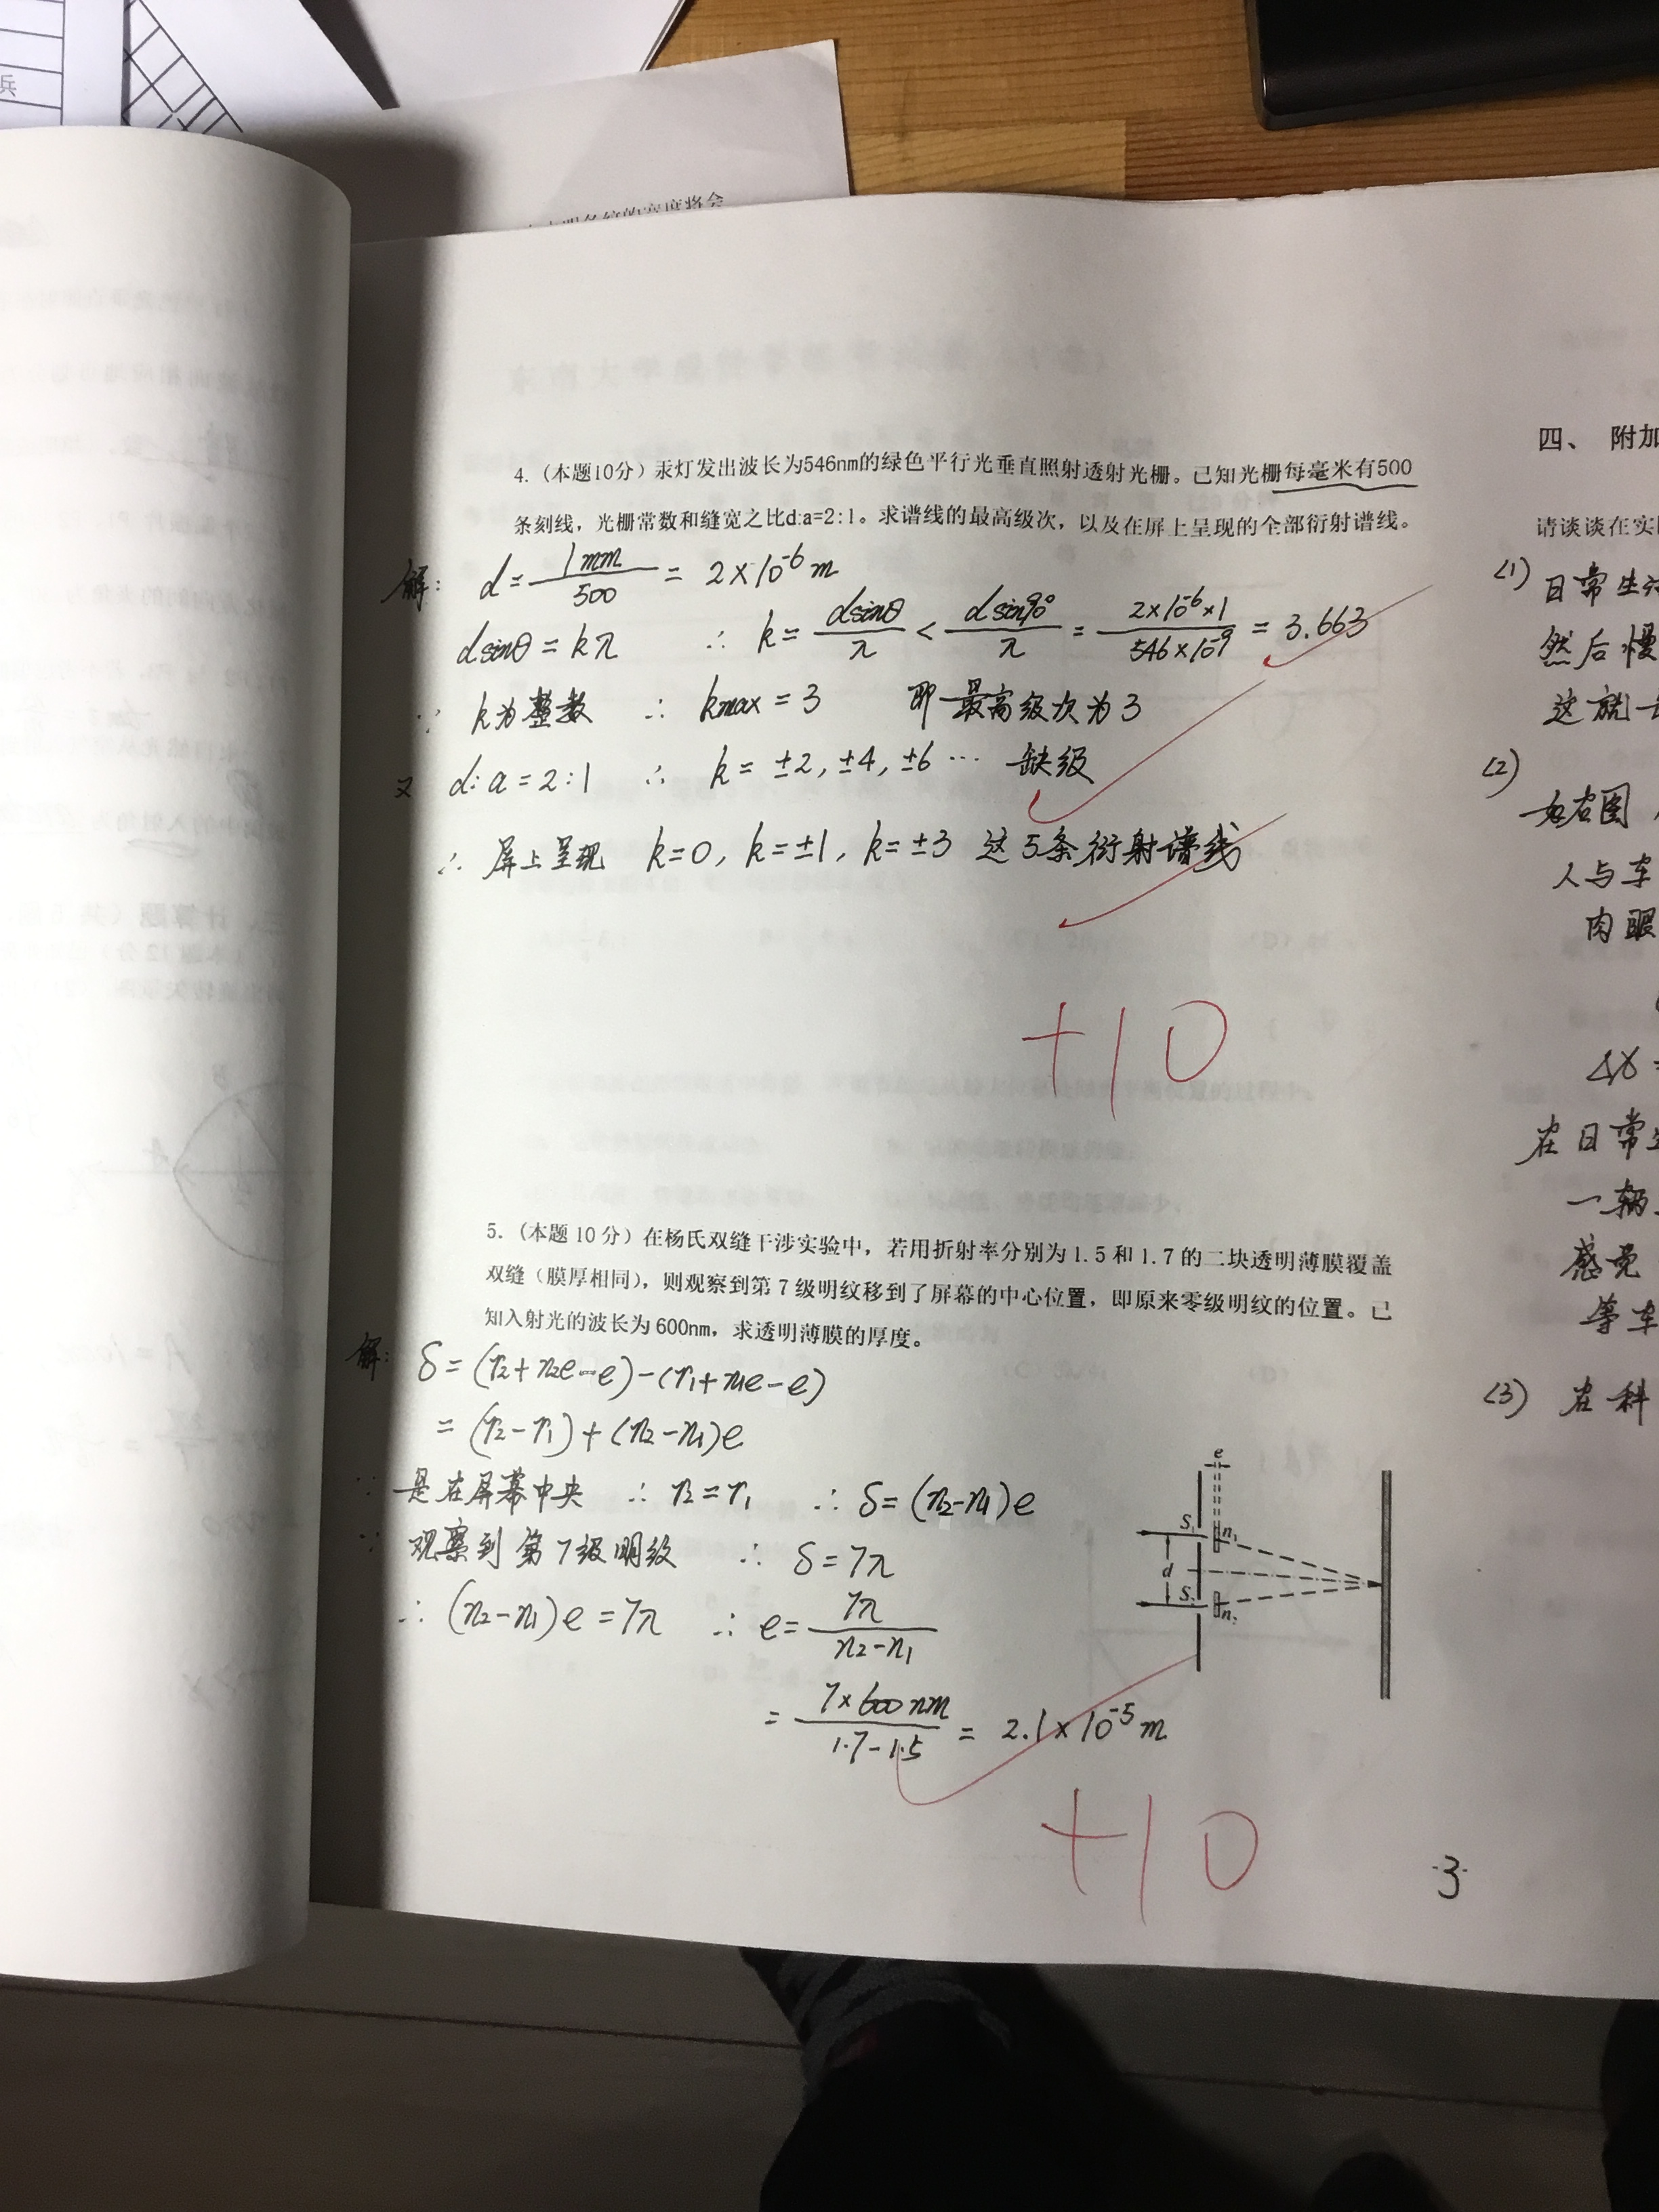 兵
4.(本题10分)汞灯发出波长为546nm的绿色平行光垂直照射透射光栅。已知光栅每毫米有500
条刻线,光栅常数和缝宽之比d:a=2:1。求谱线的最高级次,以及在屏上呈现的全部衍射谱线。
解: d=1mm/500 = 2×10⁻⁶m
dsinθ=kλ ∴ k=dsinθ/λ < dsin90°/λ = 2×10⁻⁶×1/546×10⁻⁹ = 3.663
∵ k为整数 ∴ kmax=3 即最高级次为3
又 d:a=2:1 ∴ k=±2,±4,±6… 缺级
∴ 屏上呈现 k=0, k=±1, k=±3 这5条衍射谱线
+10
5.(本题10分)在杨氏双缝干涉实验中,若用折射率分别为1.5和1.7的二块透明薄膜覆盖
双缝(膜厚相同),则观察到第7级明纹移到了屏幕的中心位置,即原来零级明纹的位置。已
知入射光的波长为600nm,求透明薄膜的厚度。
解: δ=(r₂+n₂e-e)-(r₁+n₁e-e)
=(r₂-r₁)+(n₂-n₁)e
∵ 是在屏幕中央 ∴ r₂=r₁ ∴ δ=(n₂-n₁)e
∵ 观察到第7级明纹 ∴ δ=7λ
∴ (n₂-n₁)e=7λ ∴ e=7λ/n₂-n₁
= 7×600nm/1.7-1.5 = 2.1×10⁻⁵m
e
S₁ n₁
d
S₂ n₂
+10
3
四、 附加
请谈谈在实
(1) 日常生
然后慢
这就
(2)
如右图
人与车
肉眼
Δx=
在日常
一辆
感觉
等车
(3) 在科